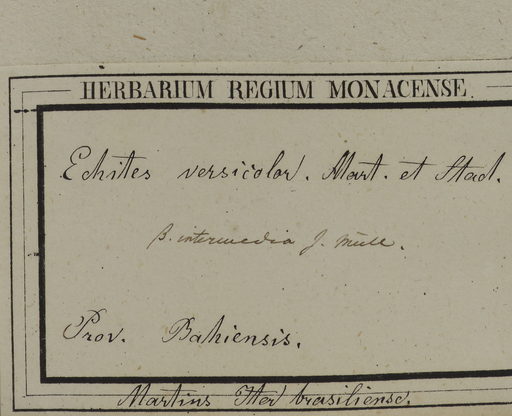 HERBARIUM REGIUM MONACENSE.
Echites versicolor. Mart. et Stad.
β. intermedia J. Müll.
Prov. Bahiensis.
Martius Iter brasiliense.